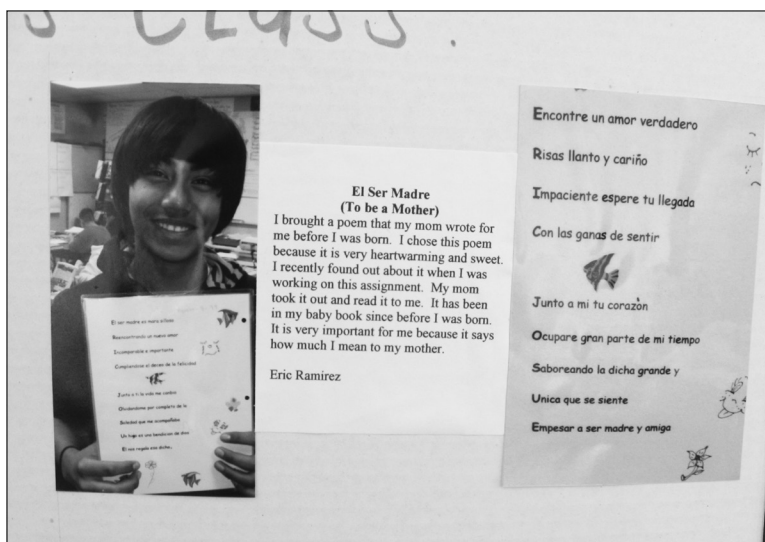 s CLASS.
El ser madre es
Reencontrando un nuevo amor
Incomparable e importante
el deseo de la felicidad
Junto a ti la vida me cambio
Olvidandome por completo de la
Soledad que me acompañaba
Un hijo es una bendicion de dios
El me regalo esa dicha..
El Ser Madre
(To be a Mother)
I brought a poem that my mom wrote for
me before I was born. I chose this poem
because it is very heartwarming and sweet.
I recently found out about it when I was
working on this assignment. My mom
took it out and read it to me. It has been
in my baby book since before I was born.
It is very important for me because it says
how much I mean to my mother.
Eric Ramirez
Encontre un amor verdadero
Risas llanto y cariño
Impaciente espere tu llegada
Con las ganas de sentir
Junto a mi tu corazòn
Ocupare gran parte de mi tiempo
Saboreando la dicha grande y
Unica que se siente
Empesar a ser madre y amiga